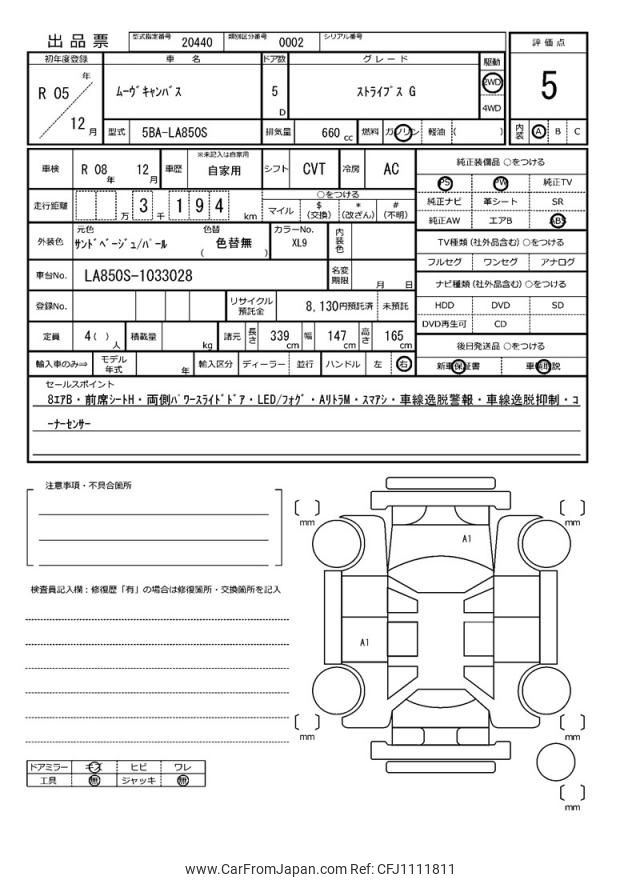 出品票 型式指定番号 20440 類別区分番号 0002 シリアル番号
評価点
5
内装 A B C
初年度登録 車名 ドア数 グレード 駆動
R 05 年 12 月
ムーヴキャンバス 5 D ストライプス G 2WD 4WD
型式 5BA-LA850S 排気量 660 cc 燃料 ガソリン 軽油 ( )
車検 R 08 年 12 月 車歴 ※未記入は自家用 自家用 シフト CVT 冷房 AC
走行距離 万 3 千 1 9 4 km
○をつける
マイル $ (交換) * (改ざん) # (不明)
外装色 元色 サンドベージュ/パール 色替 ( 色替無 ) カラーNo. XL9 内装色
車台No. LA850S-1033028 名変期限 月 日
登録No. リサイクル預託金 8,130円預託済 未預託
定員 4( ) 人 積載量 kg 諸元 長さ 339 cm 幅 147 cm 高さ 165 cm
輸入車のみ⇒ モデル年式 年 輸入区分 ディーラー 並行 ハンドル 左 右
純正装備品 ○をつける
PS PW 純正TV
純正ナビ 革シート SR
純正AW エアB ABS
TV種類 (社外品含む) ○をつける
フルセグ ワンセグ アナログ
ナビ種類 (社外品含む) ○をつける
HDD DVD SD
DVD再生可 CD
後日発送品 ○をつける
新車保証書 車輌取説
セールスポイント
8エアB・前席シートH・両側パワースライドドア・LED/フォグ・AリトラM・スマアシ・車線逸脱警報・車線逸脱抑制・コ
ーナーセンサー
注意事項・不具合箇所
検査員記入欄：修復歴「有」の場合は修復箇所・交換箇所を記入
ドアミラー キズ ヒビ ワレ
工具 無 ジャッキ 無
mm
mm
A1
A1
mm
mm
mm
www.CarFromJapan.com Ref: CFJ1111811